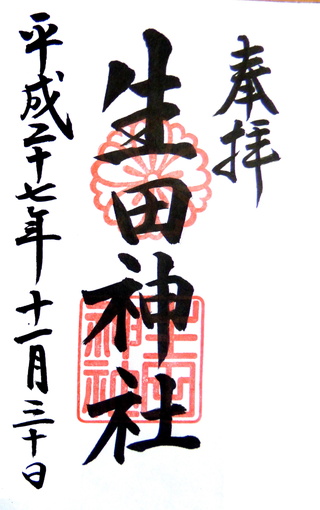 奉拝
生田神社
平成二十七年十一月三十日
生田神社